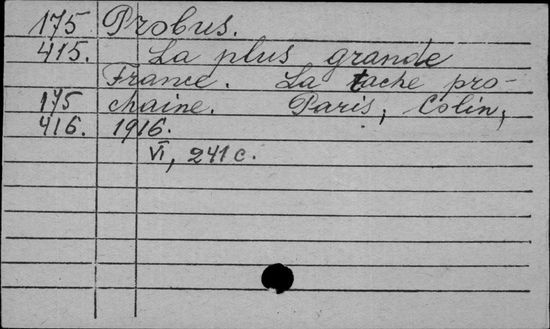 175 Probus.
415. La plus grande
France. La tache pro-
175 chaine. Paris, Colin,
416. 1916.
VI, 241 c.